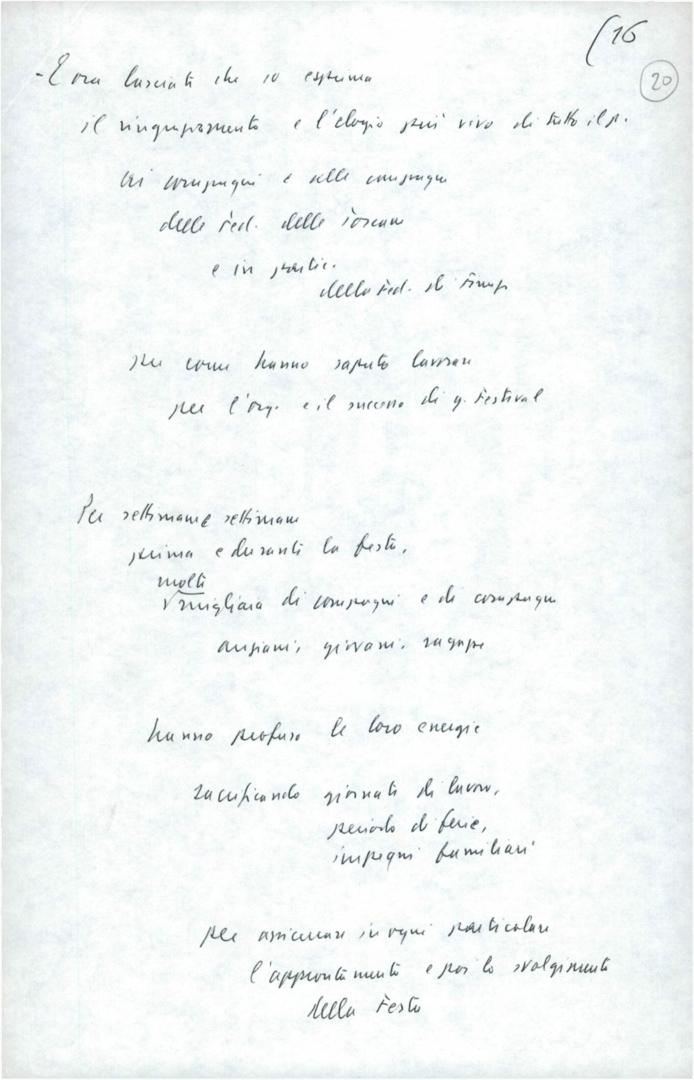 (16
20
- E ora lasciate che io esprima
il ringraziamento e l'elogio più vivo di tutto il p.
ai compagni e alle compagne
delle Fed. della Toscana
e in partic.
della Fed. di Firenze
per come hanno saputo lavorare
per l'org. e il successo di q. Festival
Per settimane e settimane
prima e durante la festa,
molte
migliaia di compagni e di compagne
anziani, giovani, ragazze
hanno profuso le loro energie
sacrificando giornate di lavoro,
periodo di ferie,
impegni familiari
per assicurare in ogni particolare
l'approntamento e poi lo svolgimento
della Festa